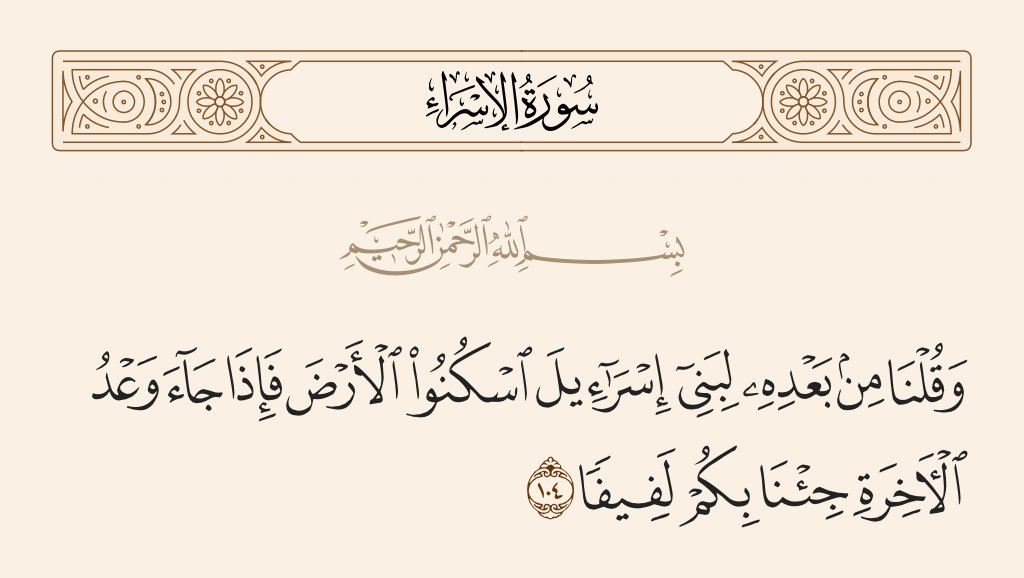 سُورَةُ الإِسْرَاءِ
بِسْمِ ٱللَّهِ ٱلرَّحْمَٰنِ ٱلرَّحِيمِ
وَقُلْنَا مِنۢ بَعْدِهِۦ لِبَنِىٓ إِسْرَٰٓءِيلَ ٱسْكُنُوا۟ ٱلْأَرْضَ فَإِذَا جَآءَ وَعْدُ
ٱلْـَٔاخِرَةِ جِئْنَا بِكُمْ لَفِيفًا ١٠٤